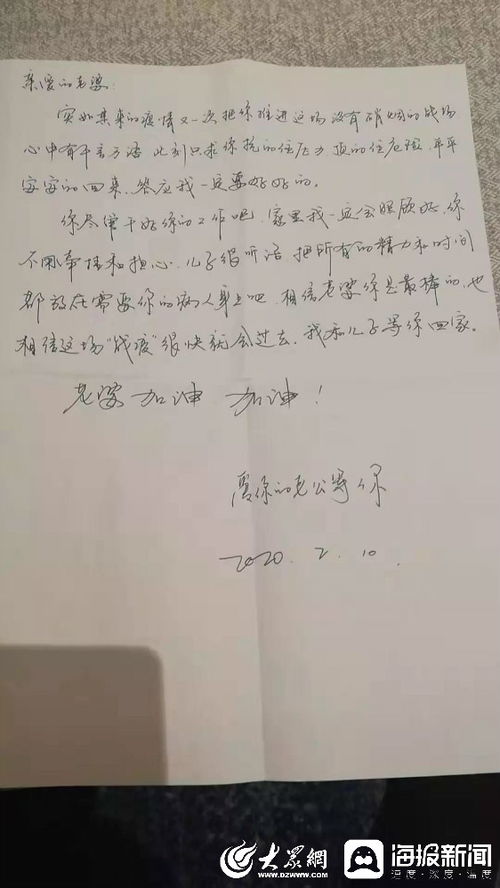 亲爱的老婆:
突如其来的疫情又一次把你推进这场没有硝烟的战场
心中有千言万语 此刻只求你抗的住压力 顶的住危险,平平
安安的回来,答应我一定要好好的。
你尽管干好你的工作吧,家里我一定会照顾好,你
不用牵挂和担心,儿子很听话,把所有的精力和时间
都放在需要你的病人身上吧,相信老婆你是最棒的,也
相信这场“战疫”很快就会过去,我和儿子等你回家。
老婆加油 加油!
爱你的老公等你
2020.2.10.
大众网
www.dzwww.com
海报新闻
速度·深度·温度